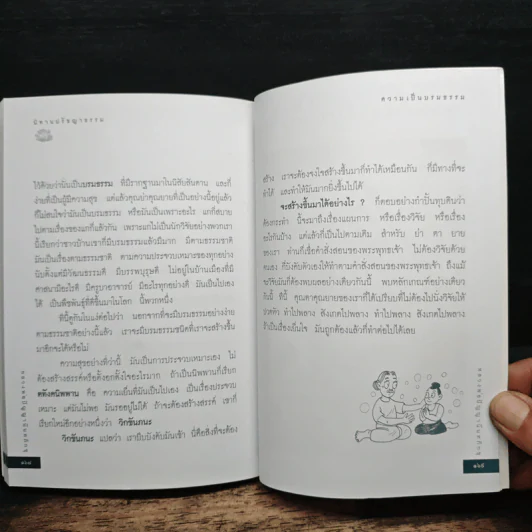 นิทานปรัชญาธรรม
ไว้ด้วยว่านั่นเป็นบรมธรรม ที่มีรากฐานมาในนิสัยสันดาน และก็
ง่ายที่เป็นผู้มีความสุข แต่แล้วคุณย่าคุณยายที่เป็นอย่างนี้อยู่แล้ว
ก็ไม่สนใจว่ามันเป็นบรมธรรม หรือมันเป็นเพราะอะไร แกก็สบาย
ไปตามเรื่องของแกก็แล้วกัน เพราะแกไม่เป็นนักวิจัยอย่างพวกเรา
นี้เรียกว่าชาวบ้านเขาก็มีบรมธรรมแล้วมีมาก มีตามธรรมชาติ
มันเป็นเรื่องตามธรรมชาติ ตามความประเหมาะของทุกอย่าง
นับตั้งแต่มีวัฒนธรรมดี มีบรรพบุรุษดี ไม่อยู่ในบ้านเมืองที่มี
ศาสนามีอะไรดี มีครูบาอาจารย์ มีอะไรทุกอย่างดี มันเป็นไปเอง
ได้ เป็นพืชพันธุ์ที่ดีขึ้นมาในโลก นี้พวกหนึ่ง
ที่นี้ดูกันในแง่ต่อไปว่า นอกจากที่จะมีบรมธรรมอย่างง่าย
ตามธรรมชาติอย่างนี้แล้ว เราจะมีบรมธรรมชนิดที่เราจะสร้างขึ้น
มาอีกจะได้หรือไม่
ความสุขอย่างที่ว่านี้ มันเป็นการประจวบเหมาะเอง ไม่
ต้องสร้างสรรค์หรือตั้งอกตั้งใจอะไรมาก ถ้าเป็นนิพพานก็เรียก
ตทังคนิพพาน คือ ความเย็นที่มันเป็นไปเอง เป็นเรื่องประจวบ
เหมาะ แต่มันไม่พอ มันรออยู่ไม่ได้ ถ้าจะต้องสร้างสรรค์ เขาก็
เรียกใหม่อีกอย่างหนึ่งว่า วิกขัมภนะ
วิกขัมภนะ แปลว่า เราบีบบังคับมันเข้า นี่คือสิ่งที่จะต้อง
ความเป็นบรมธรรม
สร้าง เราจะต้องจงใจสร้างขึ้นมาก็ทำได้เหมือนกัน ก็มีทางที่จะ
ทำได้ และทำให้มันมากยิ่งขึ้นไปได้
จะสร้างขึ้นมาได้อย่างไร ? ก็ตอบอย่างกำปั้นทุบดินว่า
ต้องกระทำ นี้จะมาถึงเรื่องแผนการ หรือเรื่องวิจัย หรือเรื่อง
อะไรกันบ้าง แต่แล้วก็เป็นไปตามเดิม สำหรับ ย่า ตา ยาย
ของเรา ท่านก็เชื่อคำสั่งสอนของพระพุทธเจ้า ไม่ต้องวิจัยด้วย
ตนเอง ก็บังคับตัวเองให้ทำตามคำสั่งสอนของพระพุทธเจ้า ถึงแม้
จะวิจัยมันก็ต้องพบมาอย่างเดียวกันนี้ พบหลักเกณฑ์อย่างเดียว
กันนี้ ทีนี้ คุณตาคุณยายของเราก็ได้เปรียบที่ไม่ต้องไปนั่งวิจัยให้
ปวดหัว ทำไปพลาง สังเกตไปพลาง ทำไปพลาง สังเกตไปพลาง
ถ้าเป็นเรื่องเย็นใจ มันถูกต้องแล้วก็ทำต่อไปได้เลย